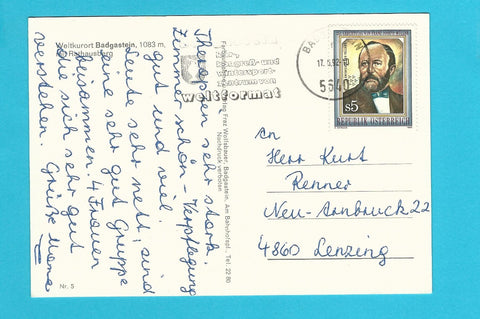 Weltkurort Badgastein, 1083 m,
Rathausberg
Therapien sehr stark.
Zimmer schön - Verpflegung
gut und viel.
Leute sehr nett, sind
eine sehr gut Gruppe
zusammen. 4 Frauen
die sich sehr gut
verstehen. Grüße Mama
Nr. 5
Franz Wolfsbauer, Badgastein, Am Bahnhofpl. Tel. 22 80
Nachdruck verboten
kongreß- und
wintersport-
zentrum von
weltformat
17. 5.92-
5640
s5
REPUBLIK ÖSTERREICH
An
Herr Kurt
Renner
Neu-Arnbruck 22
4860 Lenzing